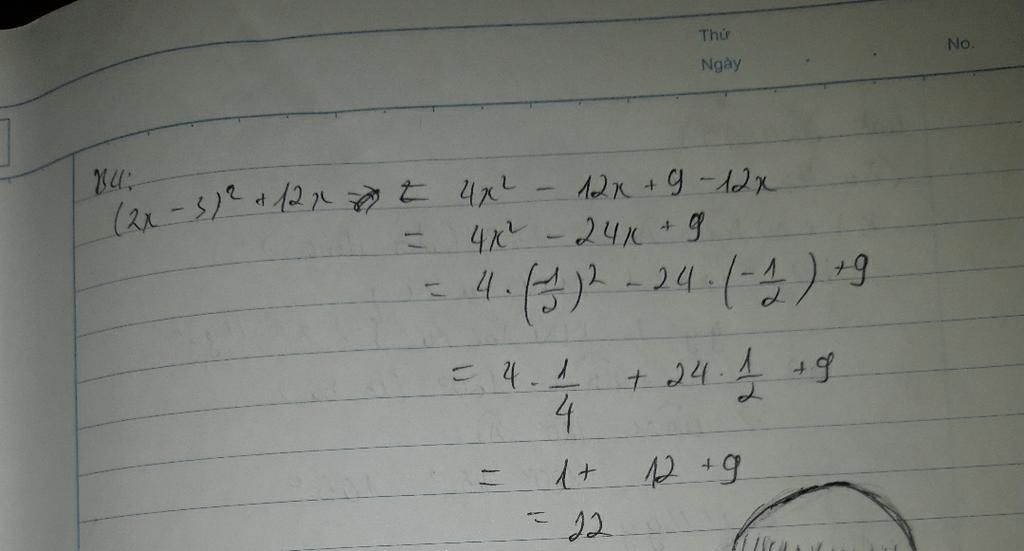 Thứ
Ngày
No.
B4:
(2x - 3)² + 12x = 4x² - 12x + 9 - 12x
= 4x² - 24x + 9
= 4 · (-1/2)² - 24 · (-1/2) + 9
= 4 · 1/4 + 24 · 1/2 + 9
= 1 + 12 + 9
= 22